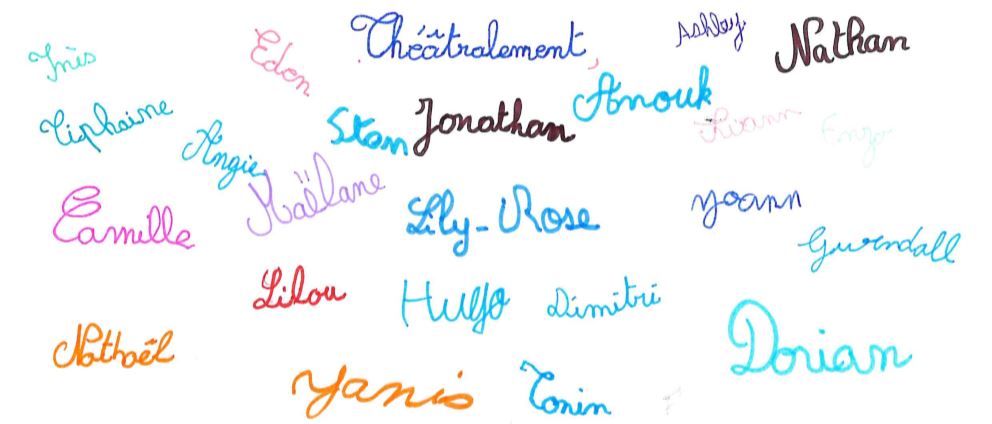 Théâtralement,
Ashley
Nathan
Inès
Eden
Anouk
Tiphaine
Stan
Jonathan
Livann
Enzo
Angie
Maëlane
Camille
Lily-Rose
Yoann
Gwendall
Lilou
Hugo
Dimitri
Nathaël
Dorian
Yanis
Tonin